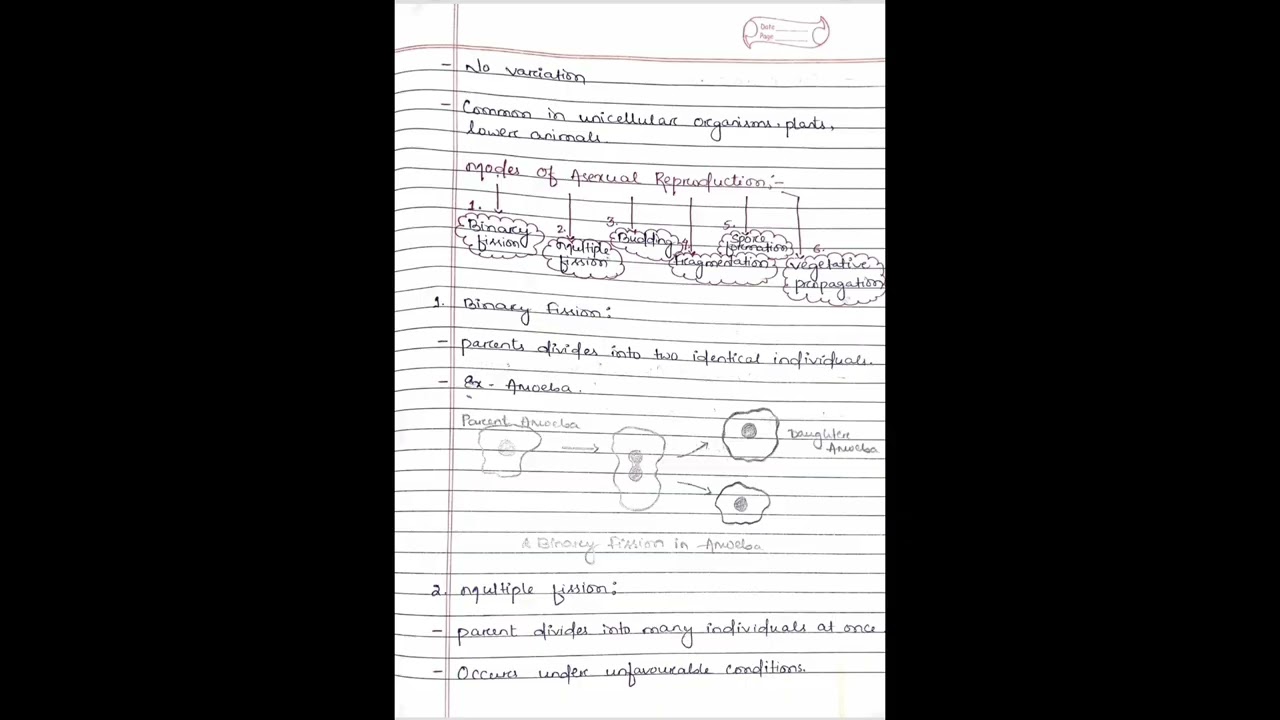 Date
Page
- No variation
- Common in unicellular organisms, plants,
lower animals.
Modes of Asexual Reproduction:-
1. Binary fission
2. Multiple fission
3. Budding
4. Fragmentation
5. Spore formation
6. Vegetative propagation
1. Binary fission:
- parents divides into two identical individuals.
- Ex - Amoeba.
Parent Amoeba
Daughter Amoeba
Binary fission in Amoeba
2. Multiple fission:
- parent divides into many individuals at once
- Occurs under unfavourable conditions.